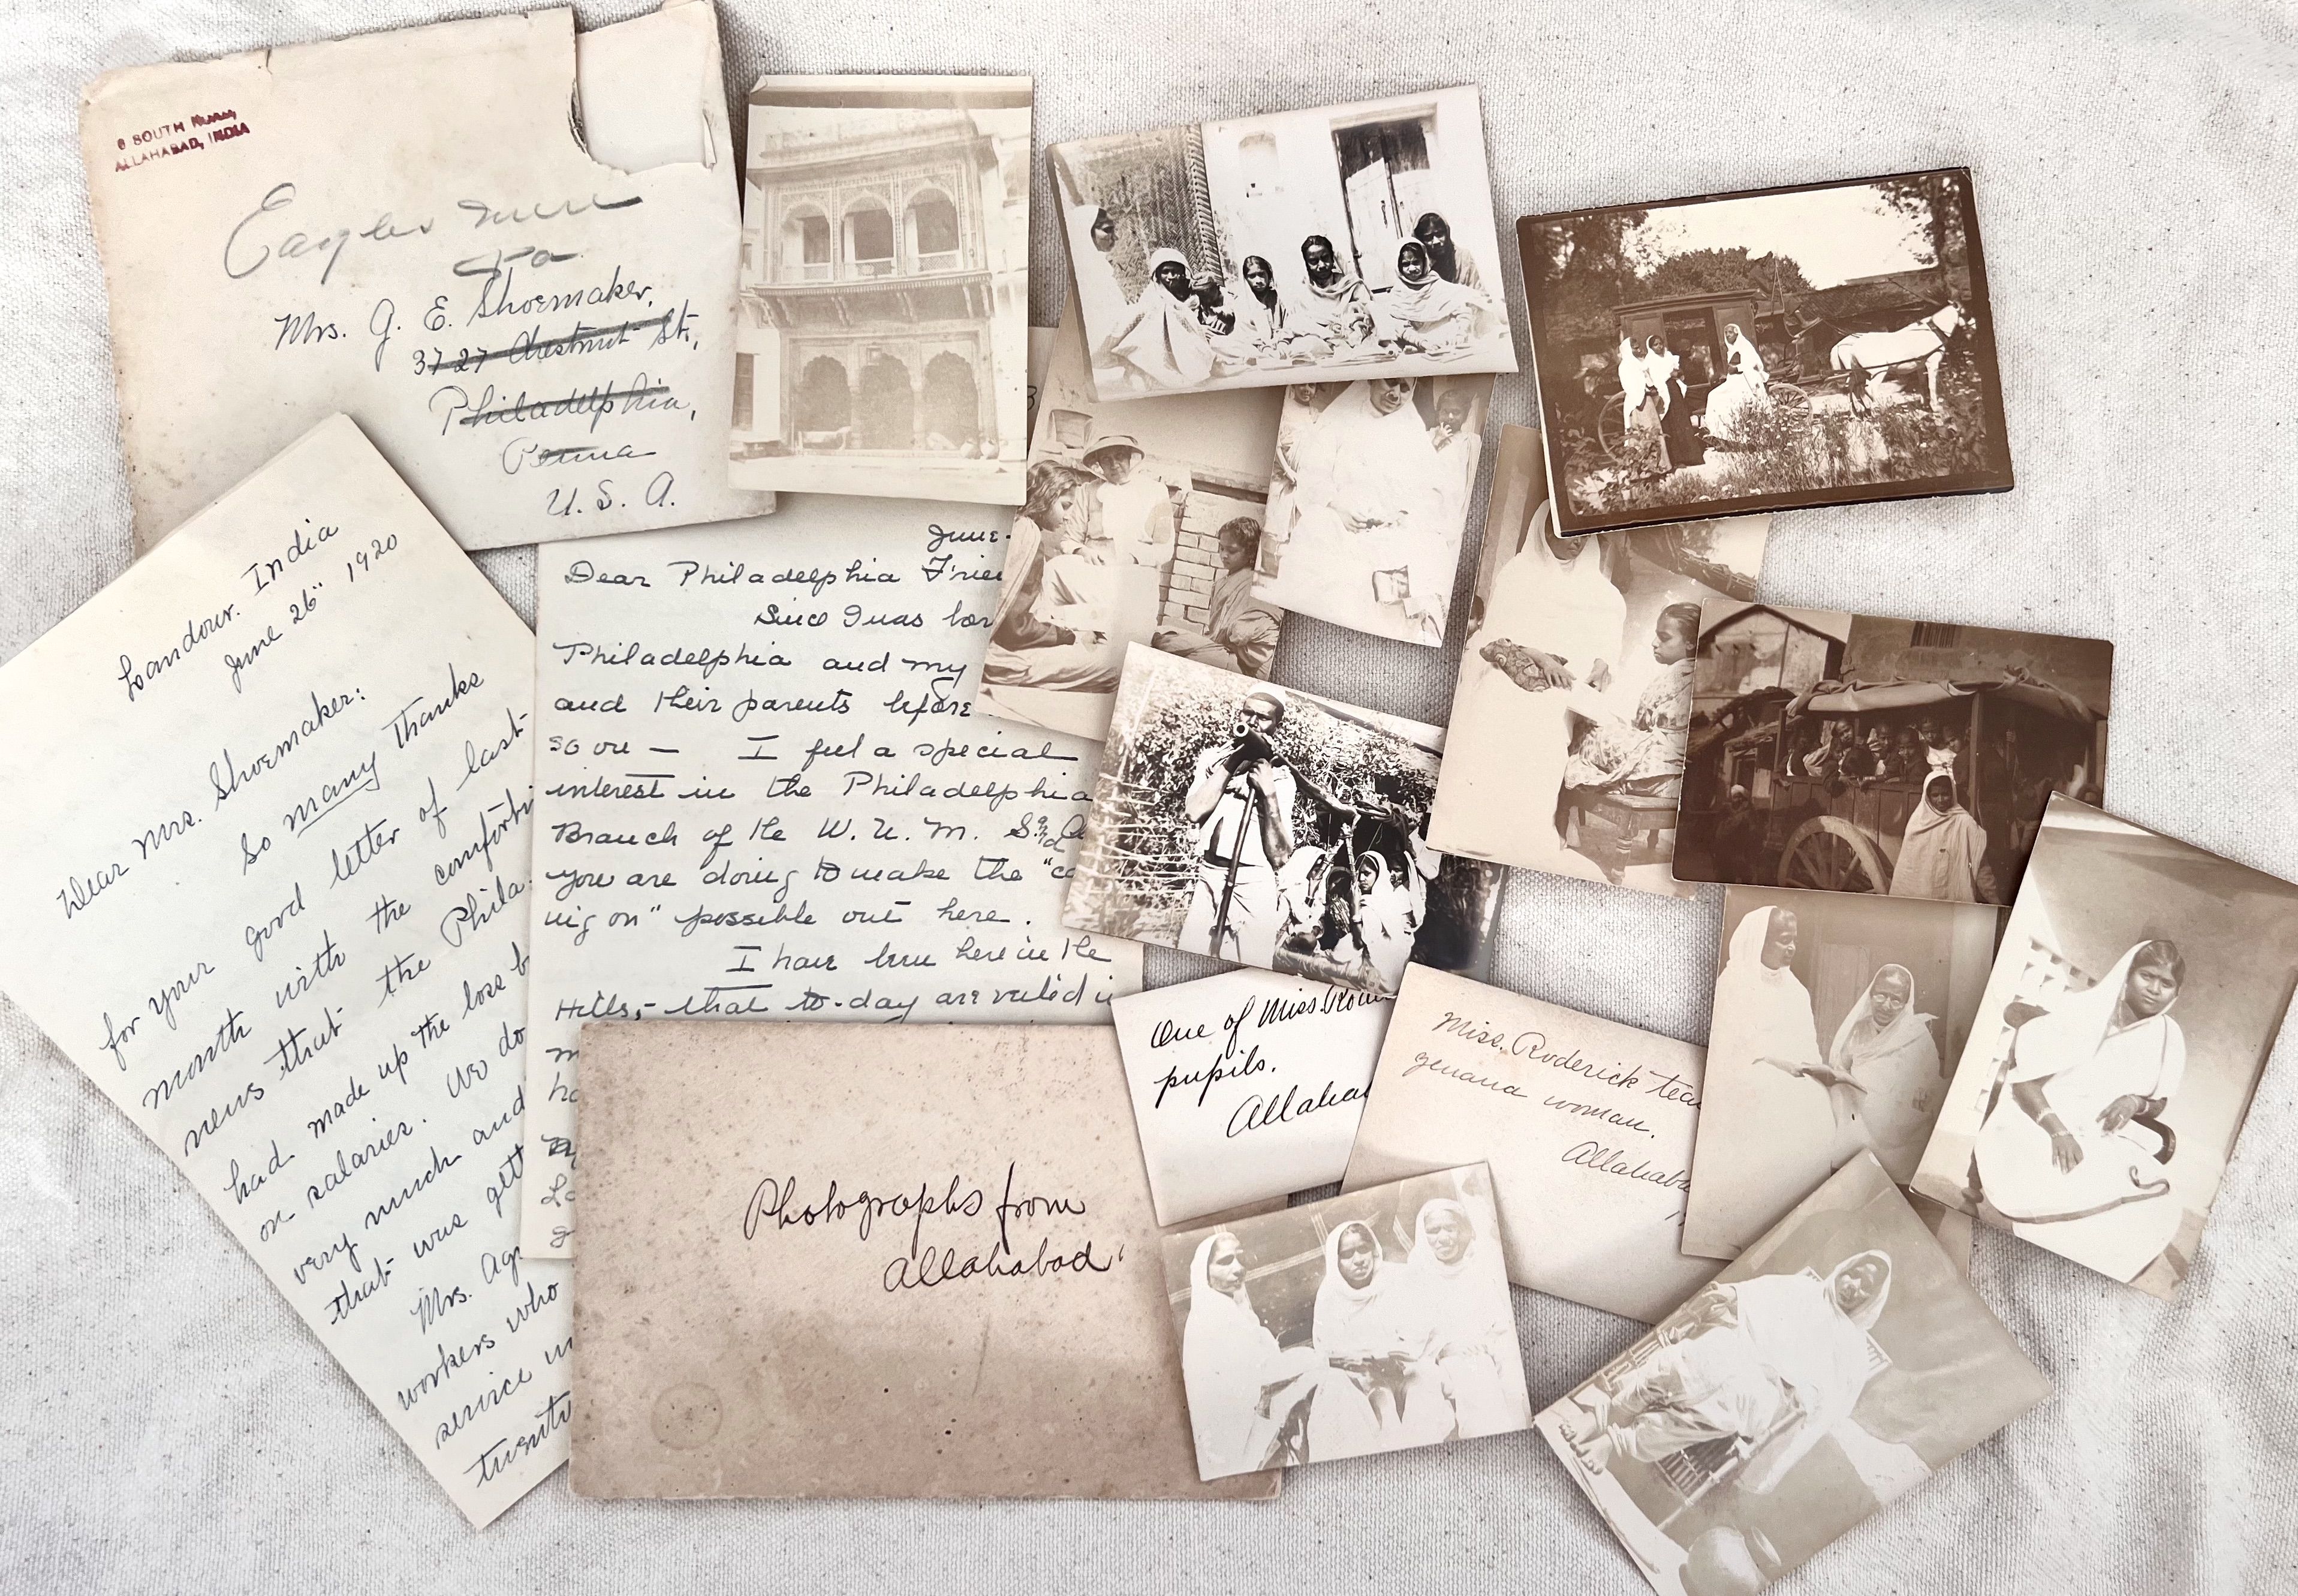 6 SOUTH
ALLAHABAD, INDIA
Eagles Mere
Pa
Mrs. G. E. Shoemaker,
3727 Chestnut St.,
Philadelphia,
Penna
U. S. A.
Landour. India
June 26" 1920
Dear Mrs. Shoemaker:
So many thanks
for your good letter of last
month with the comforti
news that the Phila.
had made up the loss b
on salaries. We do
very much and
that was gett
Mrs. Agn
workers who
service in
twenty
June
Dear Philadelphia Frien
Since I was bor
Philadelphia and my
and their parents before
so on — I feel a special
interest in the Philadelphia
Branch of the W. U. M. S.
you are doing to make the "ca
ing on" possible out here.
I have been here in the
Hills, - that to-day are veiled i
Photographs from
Allahabad.
One of Miss
pupils.
Allahab
Miss. Roderick teac
zenana woman.
Allahaba